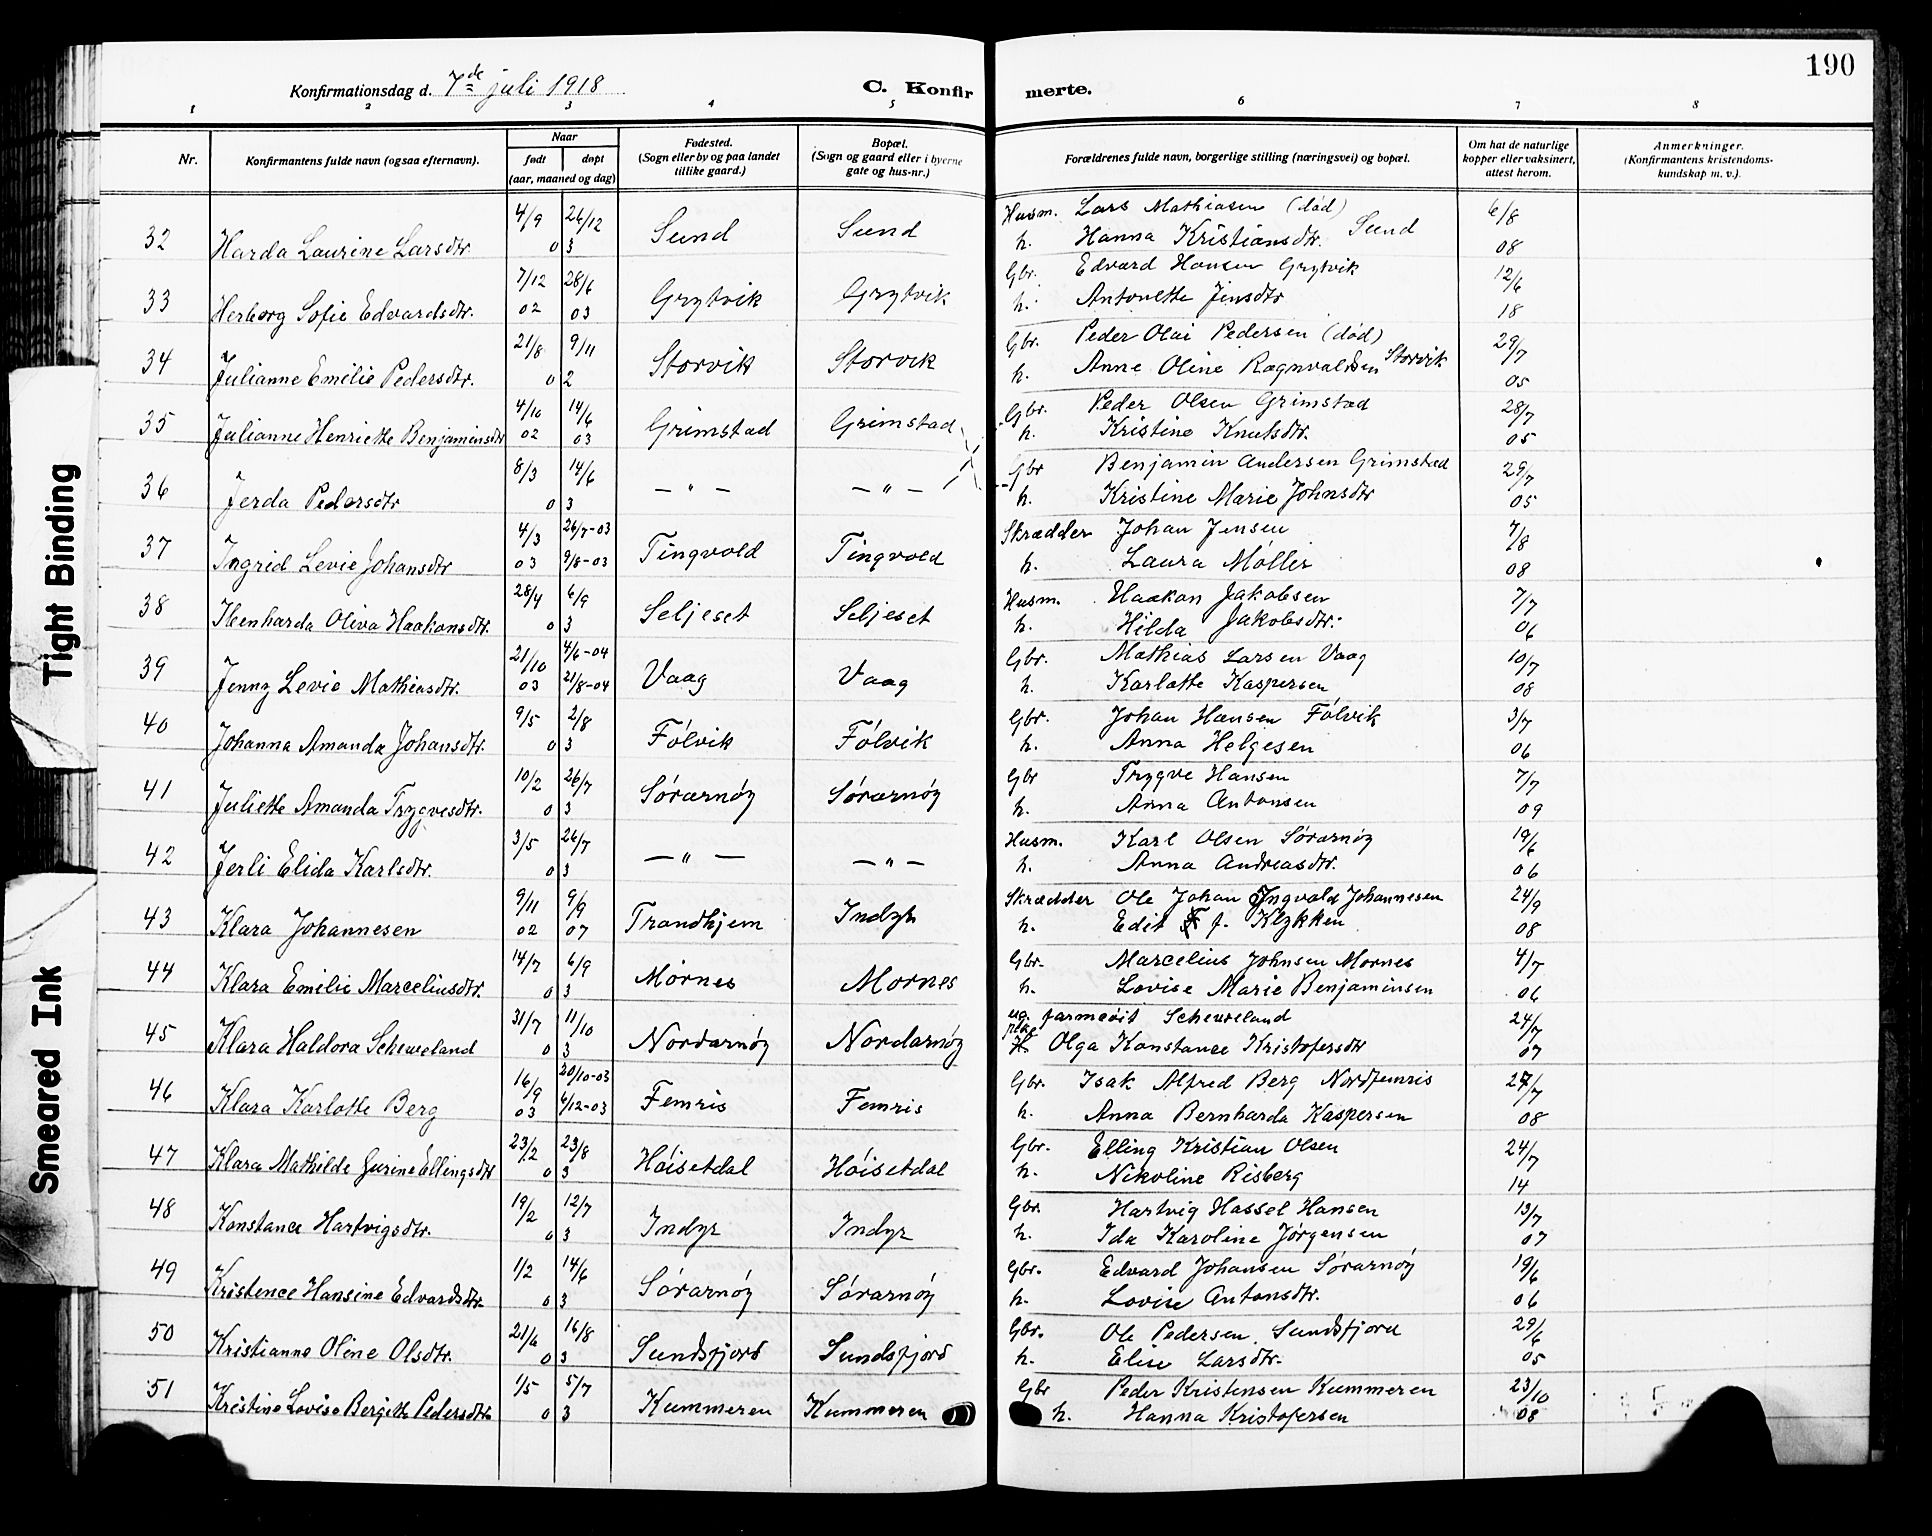 190
Konfirmationsdag d. 7de juli 1918
C. Konfirmerte.
1 2 3 4 5 6 7 8
Nr.
Konfirmantens fulde navn (ogsaa efternavn).
Naar
født døpt
(aar, maaned og dag)
Fødested.
(Sogn eller by og paa landet
tillike gaard.)
Bopæl.
(Sogn og gaard eller i byerne
gate og hus-nr.)
Forældrenes fulde navn, borgerlige stilling (næringsvei) og bopæl.
Om hat de naturlige
kopper eller vaksinert,
attest herom.
Anmerkninger.
(Konfirmantens kristendoms-
kundskap m. v.).
32 Harda Laurine Larsdtr. 4/9 03 26/12 Sund Sund Husm. Lars Mathiasen (død) 6/8
h. Hanna Kristiansdtr. Sund 08
33 Herborg Sofie Edvardsdtr. 7/12 02 28/6 03 Grytvik Grytvik Gbr. Edvard Hansen Grytvik 12/6
h. Antonette Jensdtr 18
34 Julianne Emilie Pedersdtr. 21/8 02 9/11 Storvik Storvik Gbr. Peder Olai Pedersen (død) 29/7
h. Anne Oline Ragnvaldsen Storvik 05
35 Julianne Henriette Benjaminsdtr 4/10 02 14/6 03 Grimstad Grimstad Gbr. Peder Olsen Grimstad 28/7
h. Kristine Knutsdtr. 05
36 Jerda Pedersdtr 8/3 03 14/6 — " — — " — Gbr Benjamin Andersen Grimstad 29/7
h. Kristine Marie Johnsdtr 05
37 Ingrid Levie Johansdtr 4/3 03 26/7-03 9/8-03 Tingvold Tingvold Skrædder Johan Jensen 7/8
h. Laura Møller 08
38 Ibenharda Oliva Haakonsdtr. 28/4 03 6/9 Seljeset Seljeset Husm. Haakon Jakobsen 7/7
h. Hilda Jakobsdtr. 06
39 Jenny Levie Mathiasdtr. 21/10 03 4/6-04 21/8-04 Vaag Vaag Gbr. Mathias Larsen Vaag 10/7
h. Karlotte Kaspersen 08
40 Johanna Amanda Johansdtr. 9/5 03 2/8 Følvik Følvik Gbr. Johan Hansen Følvik 3/7
h. Anna Helgesen 06
41 Juliette Amanda Trygvesdtr. 10/2 03 26/7 Sørarnøy Sørarnøy Gbr Trygve Hansen 7/7
h. Anna Antonsen 09
42 Jerli Elida Karlsdtr. 3/5 03 26/7 — " — — " — Husm. Karl Olsen Sørarnøy 19/6
h. Anna Andreasdtr. 06
43 Klara Johannesen 9/11 02 9/9 07 Trondhjem Indyr Skrædder Ole Johan Ingvald Johannesen 24/9
h. Edit f. Klykken 08
44 Klara Emilie Marceliusdtr. 14/7 03 6/9 Mørnes Mornes Gbr. Marcelius Johnsen Mornes 4/7
h. Lovise Marie Benjaminsen 06
45 Klara Haldora Scheveland 31/7 03 11/10 Nordarnøy Nordarnøy ug. farmcøit Scheveland 24/7
pike Olga Konstance Kristofersdtr 07
46 Klara Karlotte Berg 16/9 03 20/10-03 4/12-03 Femris Femris Gbr. Isak Alfred Berg Nordfemris 27/7
h. Anna Bernharda Kaspersen 08
47 Klara Mathilde Gurine Ellingsdtr 23/2 03 23/8 Høisetdal Høisetdal Gbr. Elling Kristian Olsen 24/7
h. Nikoline Risberg 14
48 Konstance Hartvigsdtr. 19/2 03 12/7 Indyr Indyr Gbr. Hartvig Hassel Hansen 13/7
h. Ida Karoline Jørgensen 07
49 Kristence Hansine Edvardsdtr. 1/2 03 14/6 Sørarnøy Sørarnøy Gbr. Edvard Johansen Sørarnøy 19/6
h. Lovise Antonsdtr. 06
50 Kristianne Oline Olsdtr. 21/6 03 16/8 Sundsfjord Sundsfjord Gbr. Ole Pedersen Sundsfjord 29/6
h. Elise Larsdtr. 05
51 Kristine Lovise Bergitte Pedersdtr 1/5 03 5/7 Kummeren Kummeren Gbr Peder Kristensen Kummeren 23/10
h. Hanna Kristofersen 08
Tight Binding
Smeared Ink